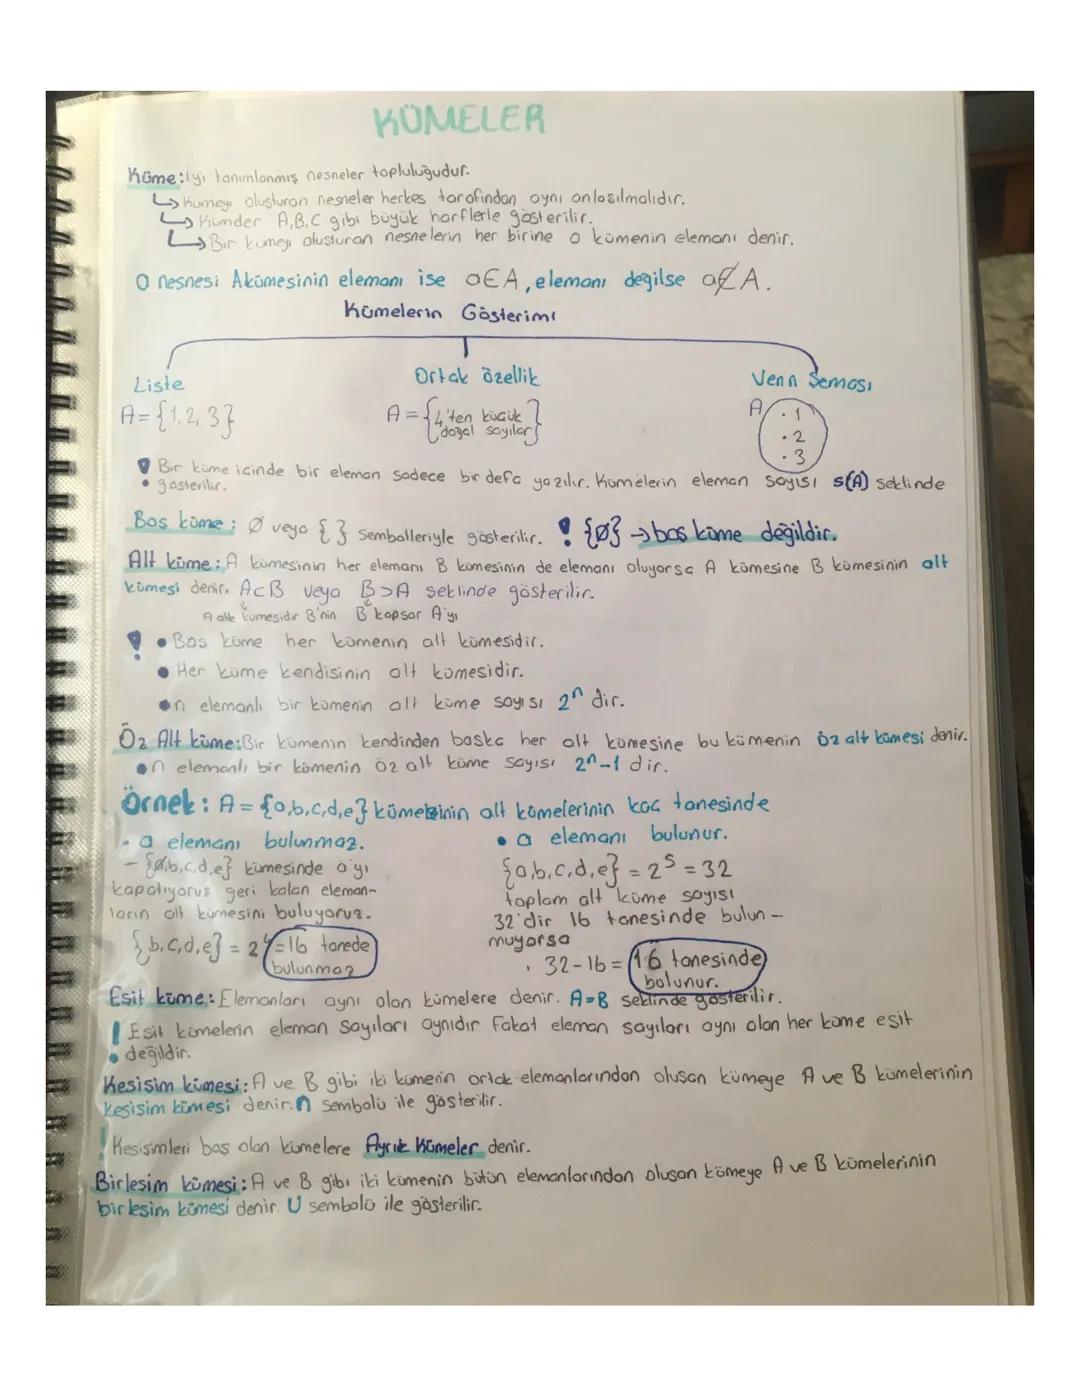 KÜMELER
Küme: İyi tanımlanmış nesneler topluluğudur.
↳ Kümeyi oluşturan nesneler herkes tarafından aynı anlaşılmalıdır.
↳ Kümeler A,B,C gibi büyük harflerle gösterilir.
↳ Bir kümeyi oluşturan nesnelerin her birine o kümenin elemanı denir.
a nesnesi A kümesinin elemanı ise a∈A, elemanı değilse a∉A.
Kümelerin Gösterimi
Liste Ortak özellik Venn Şeması
A={1,2,3} A={4'ten küçük doğal sayılar} A .1 .2 .3
! Bir küme içinde bir eleman sadece bir defa yazılır. Kümelerin eleman sayısı s(A) şeklinde
gösterilir.
Boş küme: Ø veya { } sembolleriyle gösterilir. ! {Ø} → boş küme değildir.
Alt küme: A kümesinin her elemanı B kümesinin de elemanı oluyorsa A kümesine B kümesinin alt
kümesi denir. A⊂B veya B⊃A şeklinde gösterilir.
A alt kümesidir B'nin B kapsar A'yı
! • Boş küme her kümenin alt kümesidir.
• Her küme kendisinin alt kümesidir.
• n elemanlı bir kümenin alt küme sayısı 2ⁿ dir.
Öz Alt küme: Bir kümenin kendinden başka her alt kümesine bu kümenin öz alt kümesi denir.
• n elemanlı bir kümenin öz alt küme sayısı 2ⁿ-1 dir.
Örnek: A={a,b,c,d,e} kümesinin alt kümelerinin kaç tanesinde
• a elemanı bulunmaz.
- {a,b,c,d,e} kümesinde a'yı
kapatıyoruz geri kalan eleman-
ların alt kümesini buluyoruz.
{b,c,d,e} = 2⁴=16 tanede
bulunmaz
• a elemanı bulunur.
{a,b,c,d,e} = 2⁵ = 32
toplam alt küme sayısı
32'dir 16 tanesinde bulun-
muyorsa
. 32-16 = 16 tanesinde
bulunur.
Eşit küme: Elemanları aynı olan kümelere denir. A=B şeklinde gösterilir.
! Eşit kümelerin eleman sayıları aynıdır Fakat eleman sayıları aynı olan her küme eşit
değildir.
Kesişim kümesi: A ve B gibi iki kümenin ortak elemanlarından oluşan kümeye A ve B kümelerinin
kesişim kümesi denir. ∩ sembolü ile gösterilir.
! Kesişimleri boş olan kümelere Ayrık Kümeler denir.
Birleşim kümesi: A ve B gibi iki kümenin bütün elemanlarından oluşan kümeye A ve B kümelerinin
birleşim kümesi denir. U sembolü ile gösterilir.